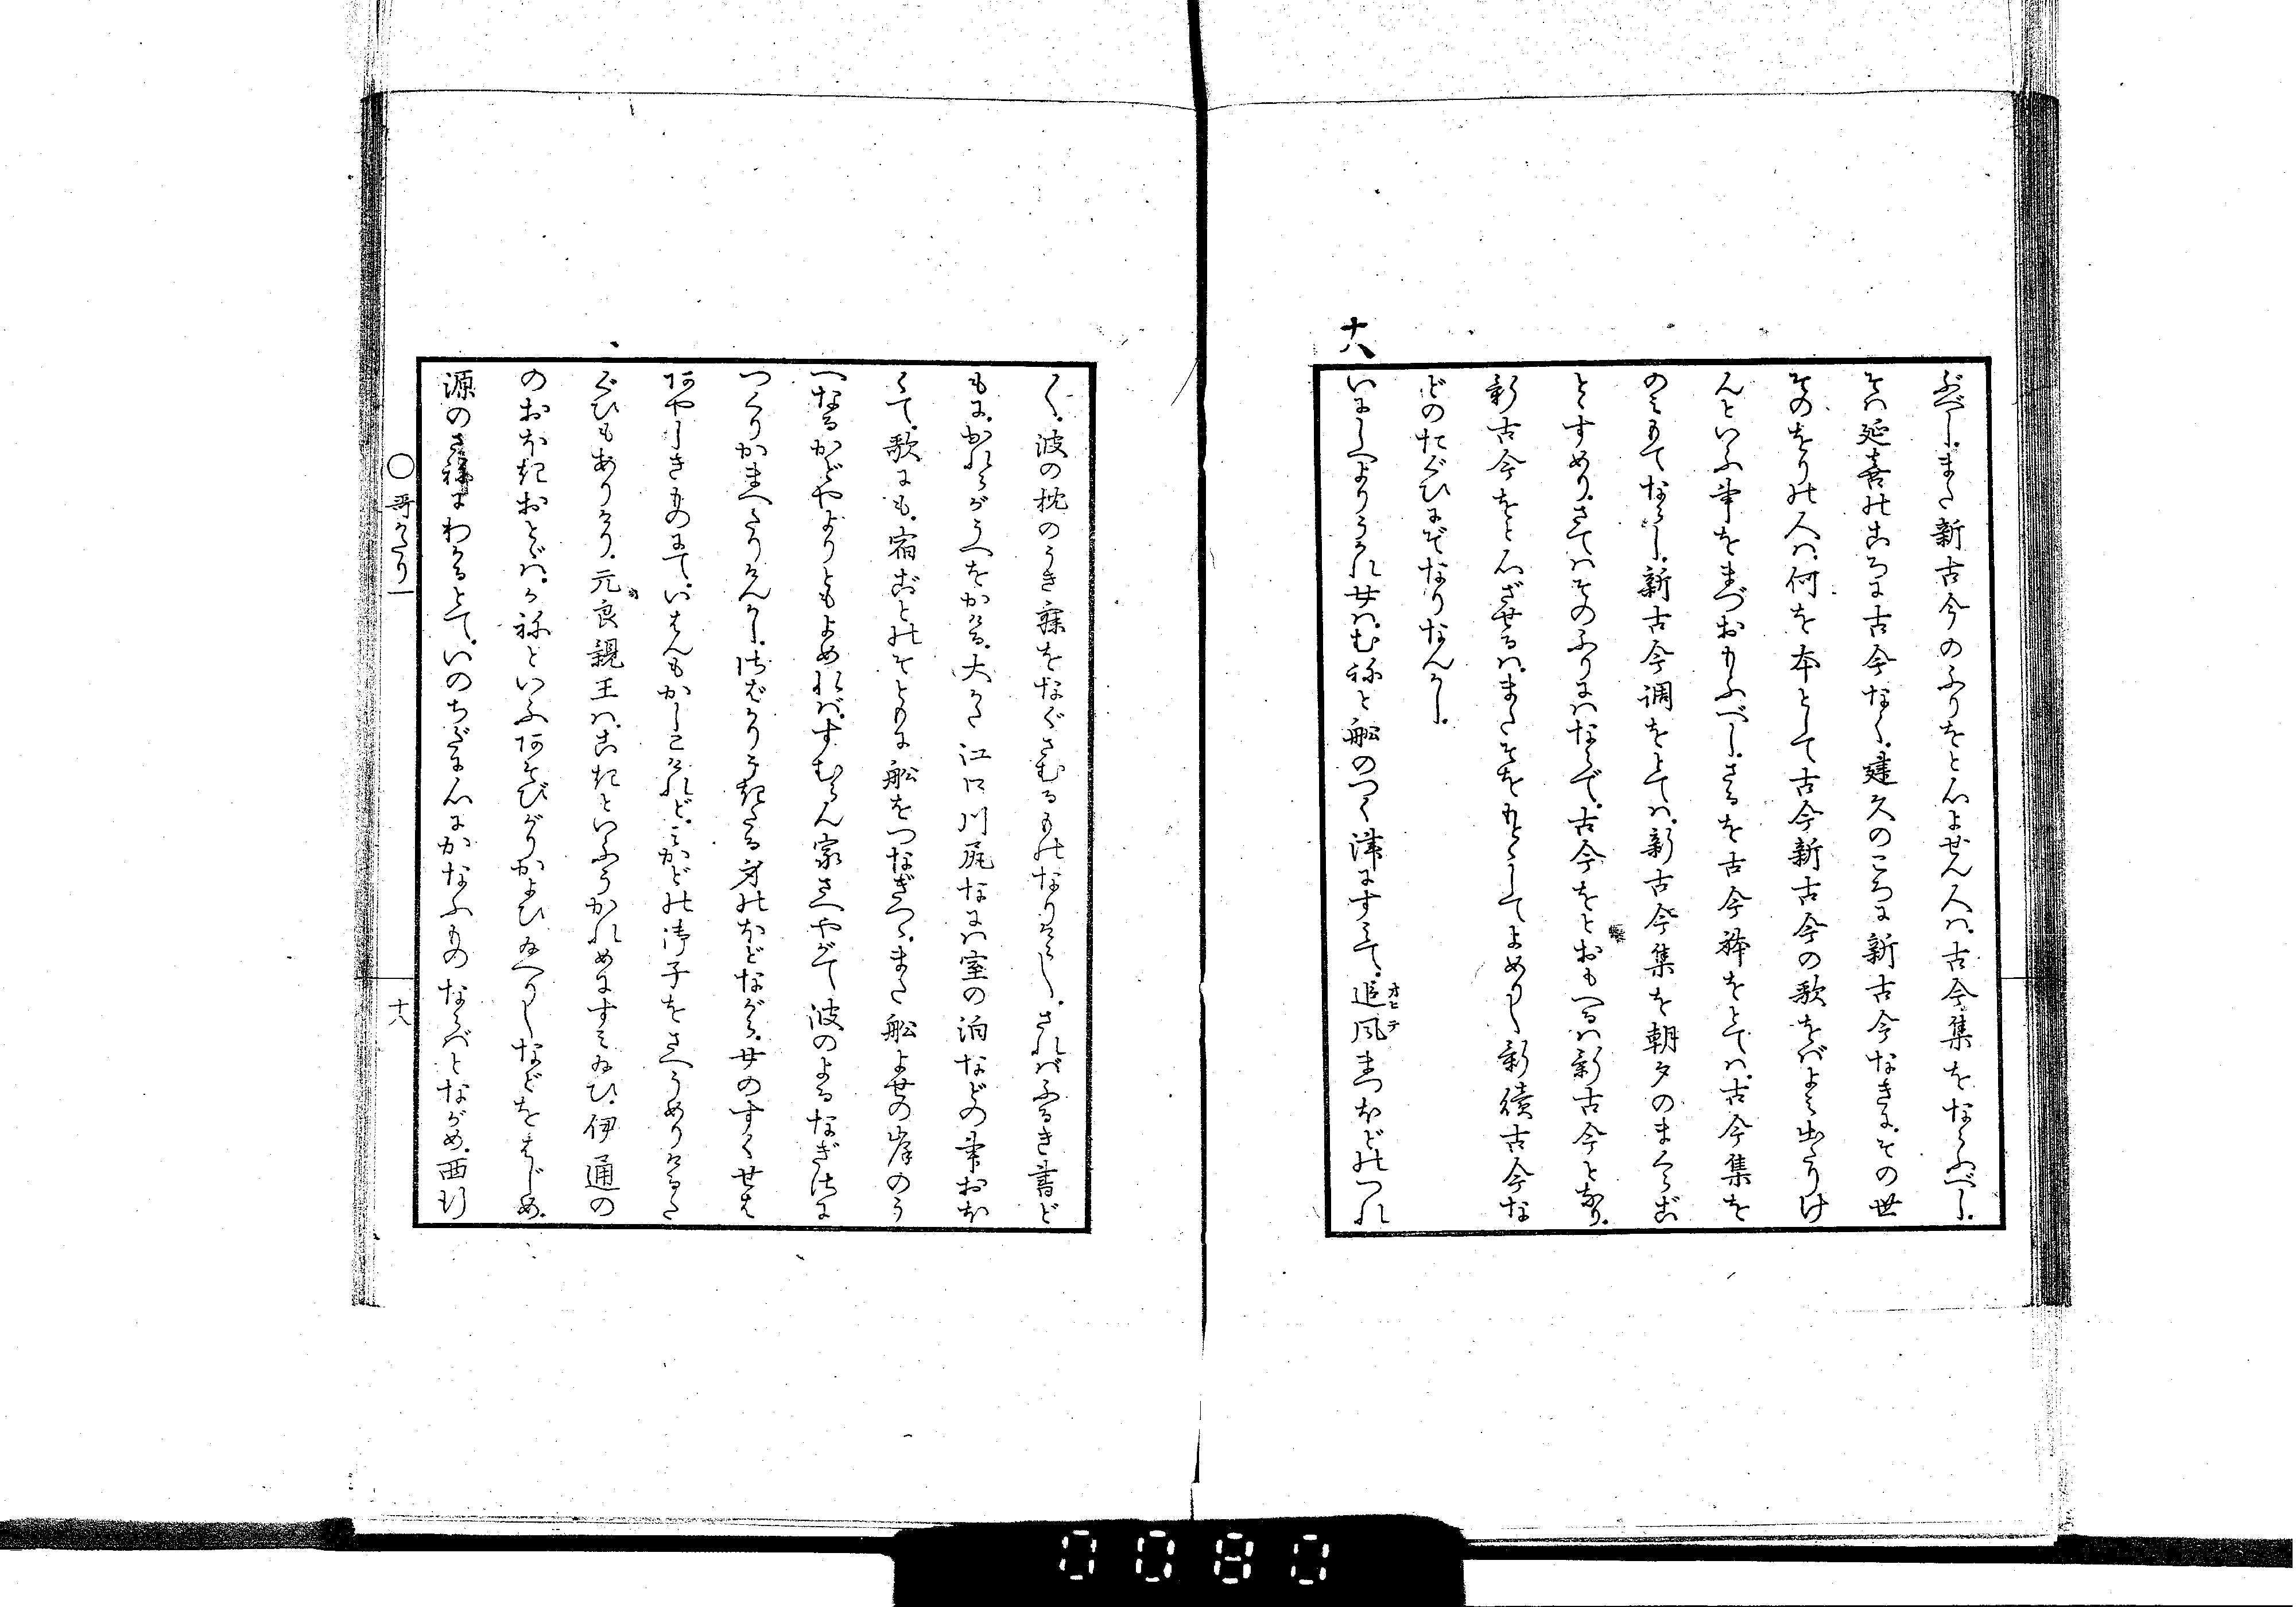 ぶべし。また新古今のふりをとらせん人は。古今集をならふべし。
そは延喜のころに古今なく。建久のころに新古今なきに。その世
そのをりの人は。何を本として古今新古今の歌をばよみ出たりけ
んといふ事をまづおもふべし。さるを古今躰をとては。古今集を
のみもてならし。新古今調をとては。新古今集を朝夕のまくらご
とすめり。さてはそのふりにはならで。古今をとおもへるは新古今となり。
新古今をと心ざせるは。またそをもとらしてよめりし新續古今な
どのたぐひにぞなりなんかし。
十八
いにしへよりうかれ女は。むねと船のつく津にすみて。追風まつほどのつれ
オヒテ
〱。波の枕のうき寐をなぐさむるものなりけらし。さればふるき書ど
もに。かれらがうへをかける。大かた江口川尻なには室の泊などの事おほ
くて。歌にも。宿ごとのそともに船をつなぎつゝ。また船よせの岸のう
へなるかどやよりともよめれば。すむらん家さへやがて波のよるなぎさに
つくりかまへたりけんかし。さばかりうきたる身のほどながら。女のすくせは
あやしきものにて。いはんもかしこけれど。みかどの御子をさへうめりけるた
ぐひもありけり。元良親王は。こきといふうかれめにすみ給ひ。伊通の
のおほきおとゞは。かねといふあそびがりかよひ給へりしなどをはじめ。
源のさねにわかるとて。いのちだに心にかなふものならばとながめ。西行
〇哥かたり一
十八
0080